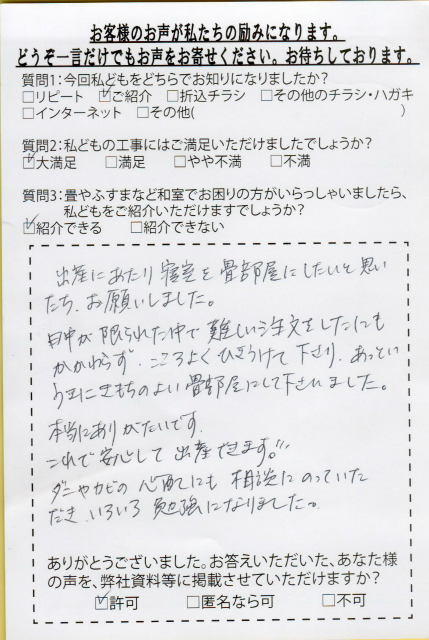 お客様のお声が私たちの励みになります。
どうぞ一言だけでもお声をお寄せください。お待ちしております。
質問1:今回私どもをどちらでお知りになりましたか?
□リピート ☑ご紹介 □折込チラシ □その他のチラシ・ハガキ
□インターネット □その他( )
質問2:私どもの工事にはご満足いただけましたでしょうか?
☑大満足 □満足 □やや不満 □不満
質問3:畳やふすまなど和室でお困りの方がいらっしゃいましたら、
私どもをご紹介いただけますでしょうか?
☑紹介できる □紹介できない
出産にあたり寝室を畳部屋にしたいと思い
たち、お願いしました。
日中が限られた中で難しい注文をしたにも
かかわらず、こころよくひきうけて下さり、あっとい
うまにきもちのよい畳部屋にして下さいました。
本当にありがたいです。
これで安心して出産できます。
ダニやカビの心配にも相談にのっていた
だき、いろいろ勉強になりました。
ありがとうございました。お答えいただいた、あなた様
の声を、弊社資料等に掲載させていただけますか?
☑許可 □匿名なら可 □不可